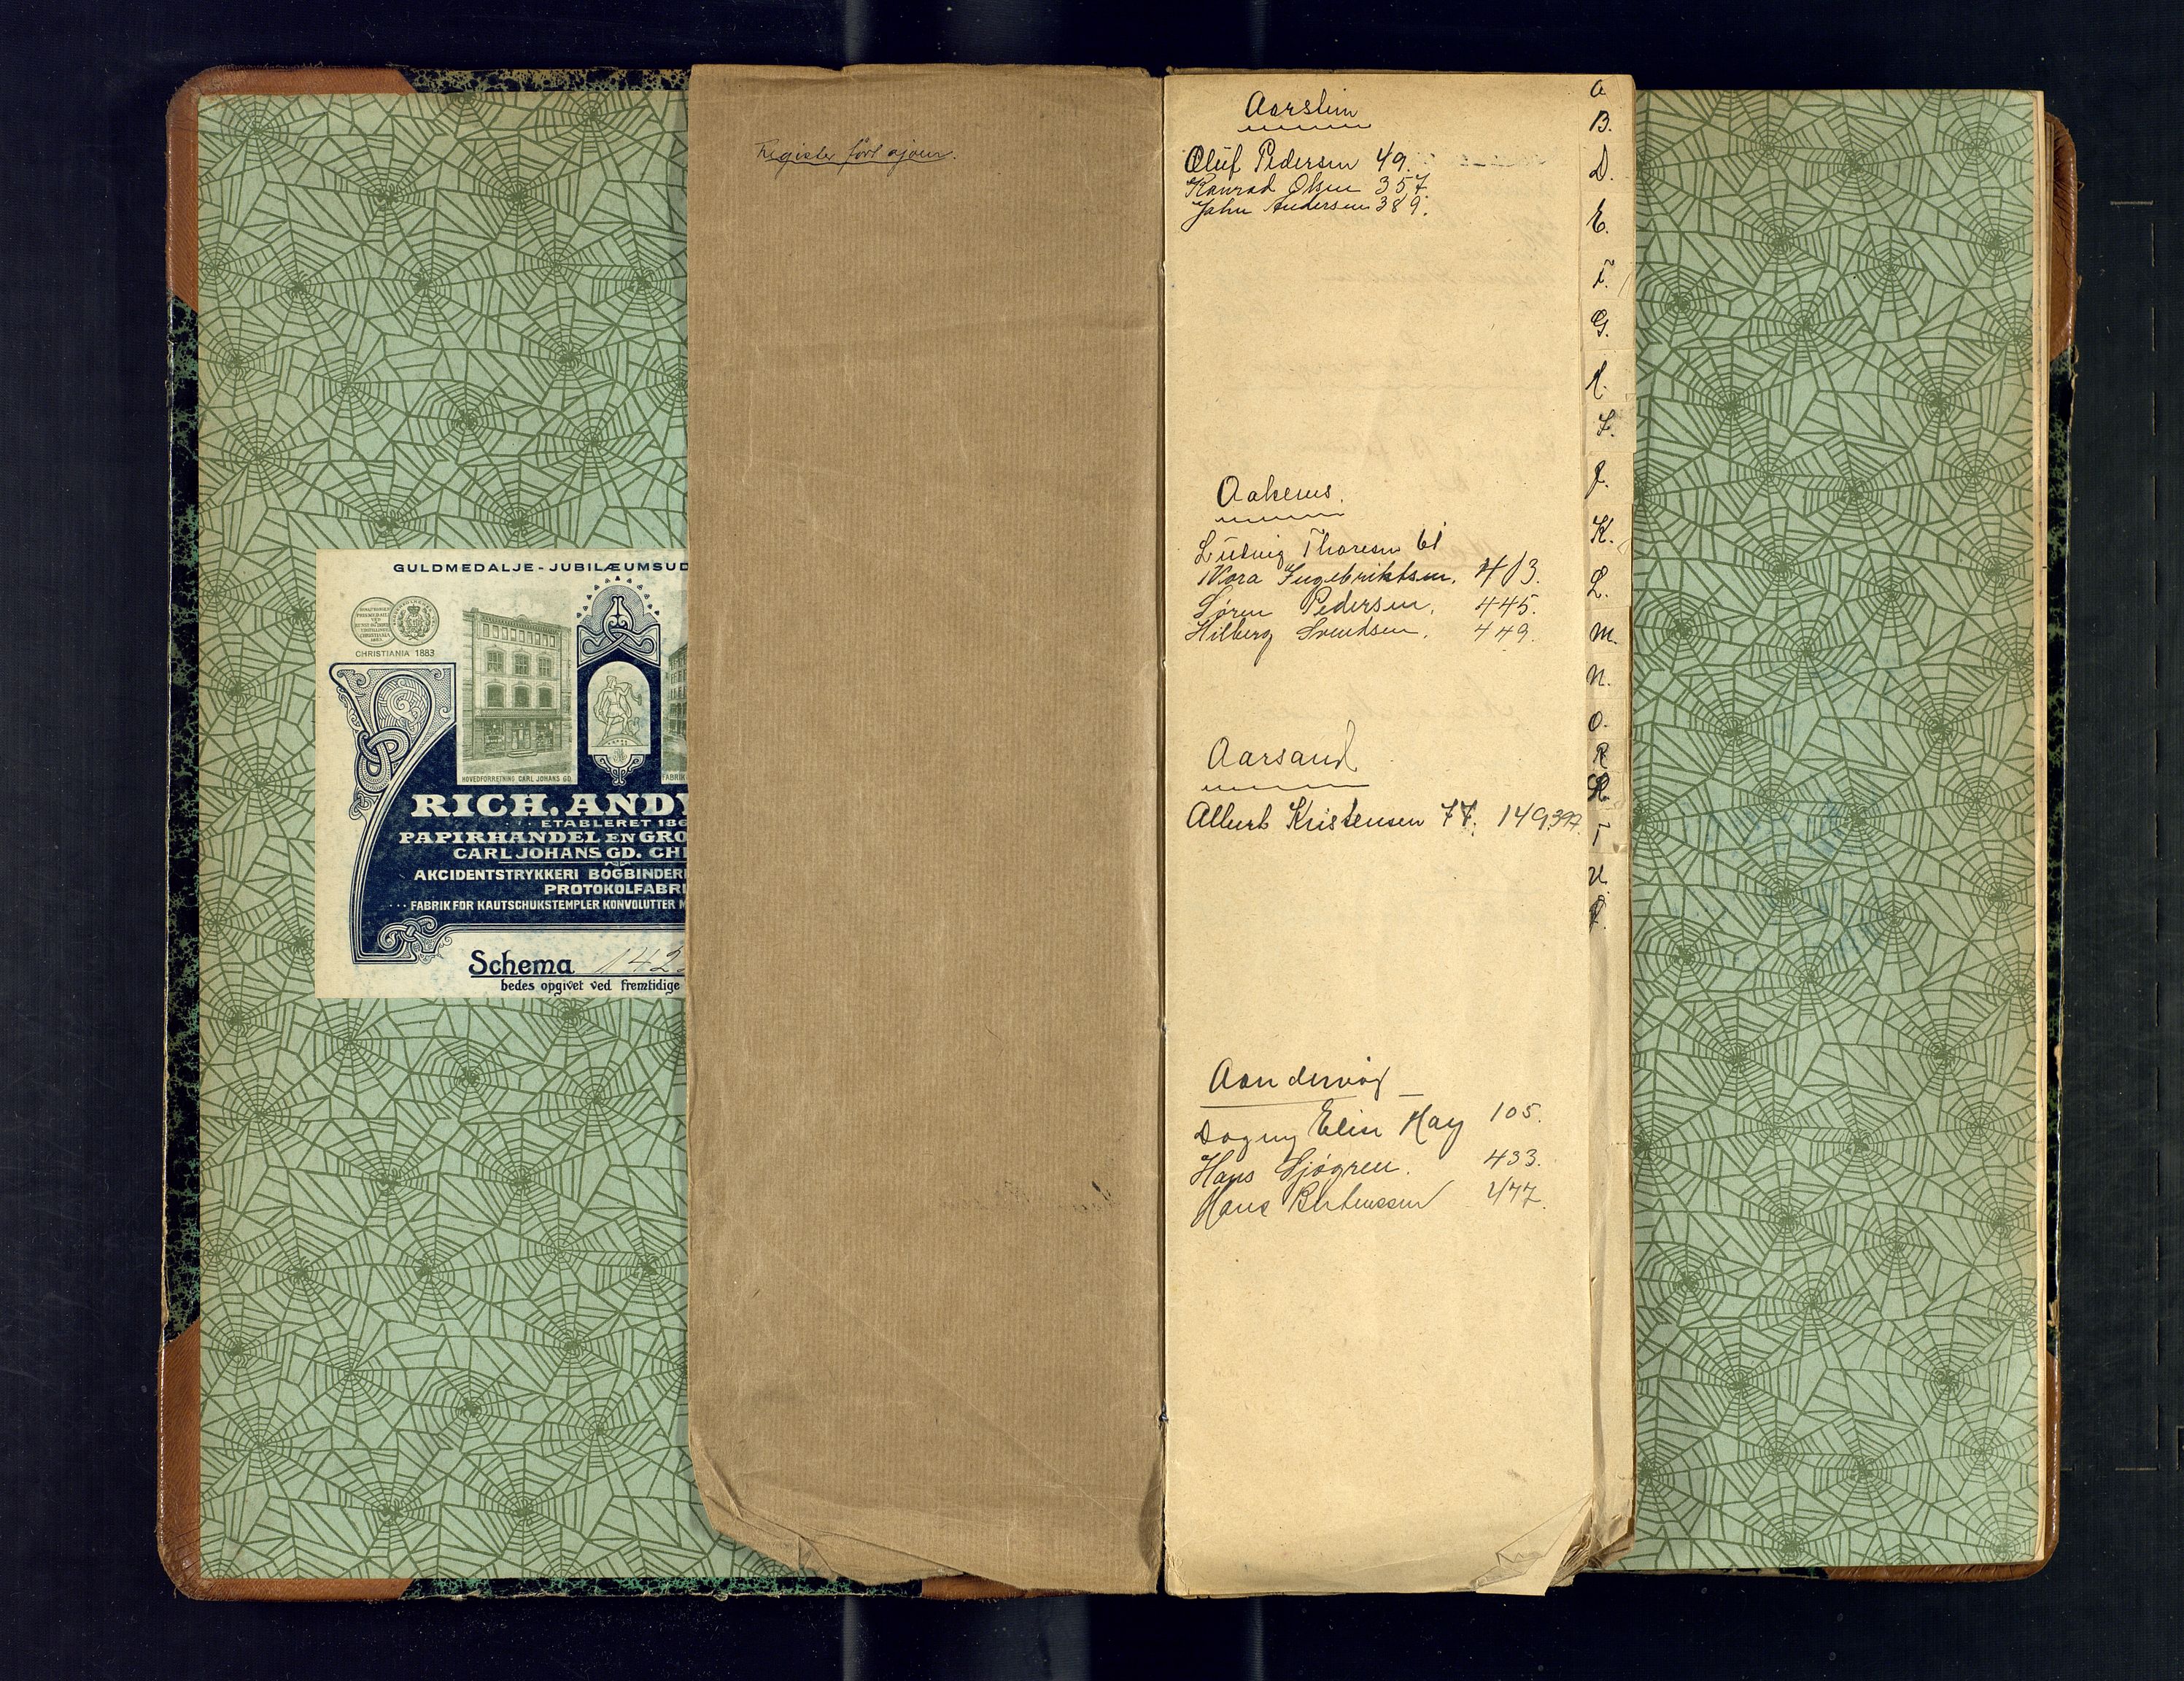 GULDMEDALJE-JUBILÆUMSUD
CHRISTIANIA 1883
HOVEDFORRETNING CARL JOHANS GD.
FABRIK
RICH. ANDV
ETABLERET 186
PAPIRHANDEL EN GRO
CARL JOHANS GD. CHR
AKCIDENTSTRYKKERI BOGBINDERI
PROTOKOLFABRI
FABRIK FOR KAUTSCHUKSTEMPLER KONVOLUTTER M
Schema 142
bedes opgivet ved fremtidige
Register ført ajour.
Aarstein
Oluf Pedersen 49.
Konrad Olsen 357
John Andersen 389.
Aakenes.
Ludvig Thoresen 61
Nora Ingebriktsen. 403.
Søren Pedersen. 445.
Hilberg Svendsen. 449.
Aarsand
Albert Kristensen 77. 149, 397.
Aandervåg
Dagny Elise Hay 105.
Hans Sjøgren. 433.
Hans Berteussen 477.
A
B.
D.
E.
F.
G.
H.
I.
J.
K.
L.
M.
N.
O.
R
S.
T
U.
V.